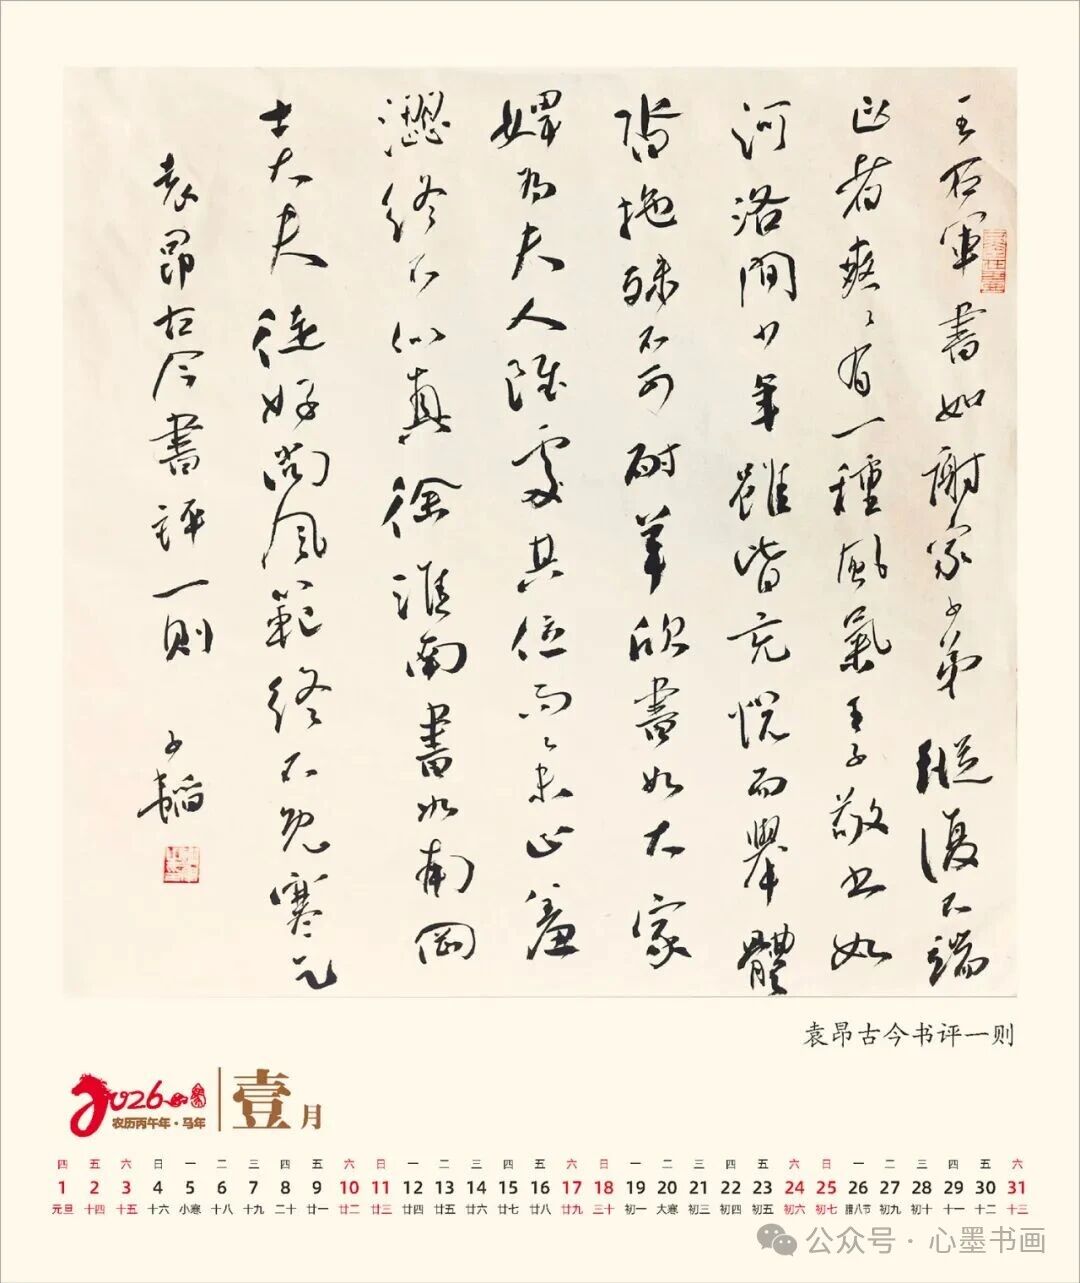 王右軍書如謝家子弟縱復不端
正者爽〻有一種風氣王子敬书如
河洛間少年雖皆充悦而舉體
沓拖殊不可耐羊欣書如大家
婢为夫人雖處其位而止羞
澀終不似真徐淮南書如南岡
士大夫徒好尚風範終不免寒乞
袁昂古今書評一則 韜
袁昂古今书评一则
2026
农历丙午年·马年
壹月
四 五 六 日 一 二 三 四 五 六 日 一 二 三 四 五 六 日 一 二 三 四 五 六 日 一 二 三 四 五 六
1 2 3 4 5 6 7 8 9 10 11 12 13 14 15 16 17 18 19 20 21 22 23 24 25 26 27 28 29 30 31
元旦 十四 十五 十六 小寒 十八 十九 二十 廿一 廿二 廿三 廿四 廿五 廿六 廿七 廿八 廿九 三十 初一 大寒 初三 初四 初五 初六 初七 腊八节 初九 初十 十一 十二 十三
公众号·心墨书画